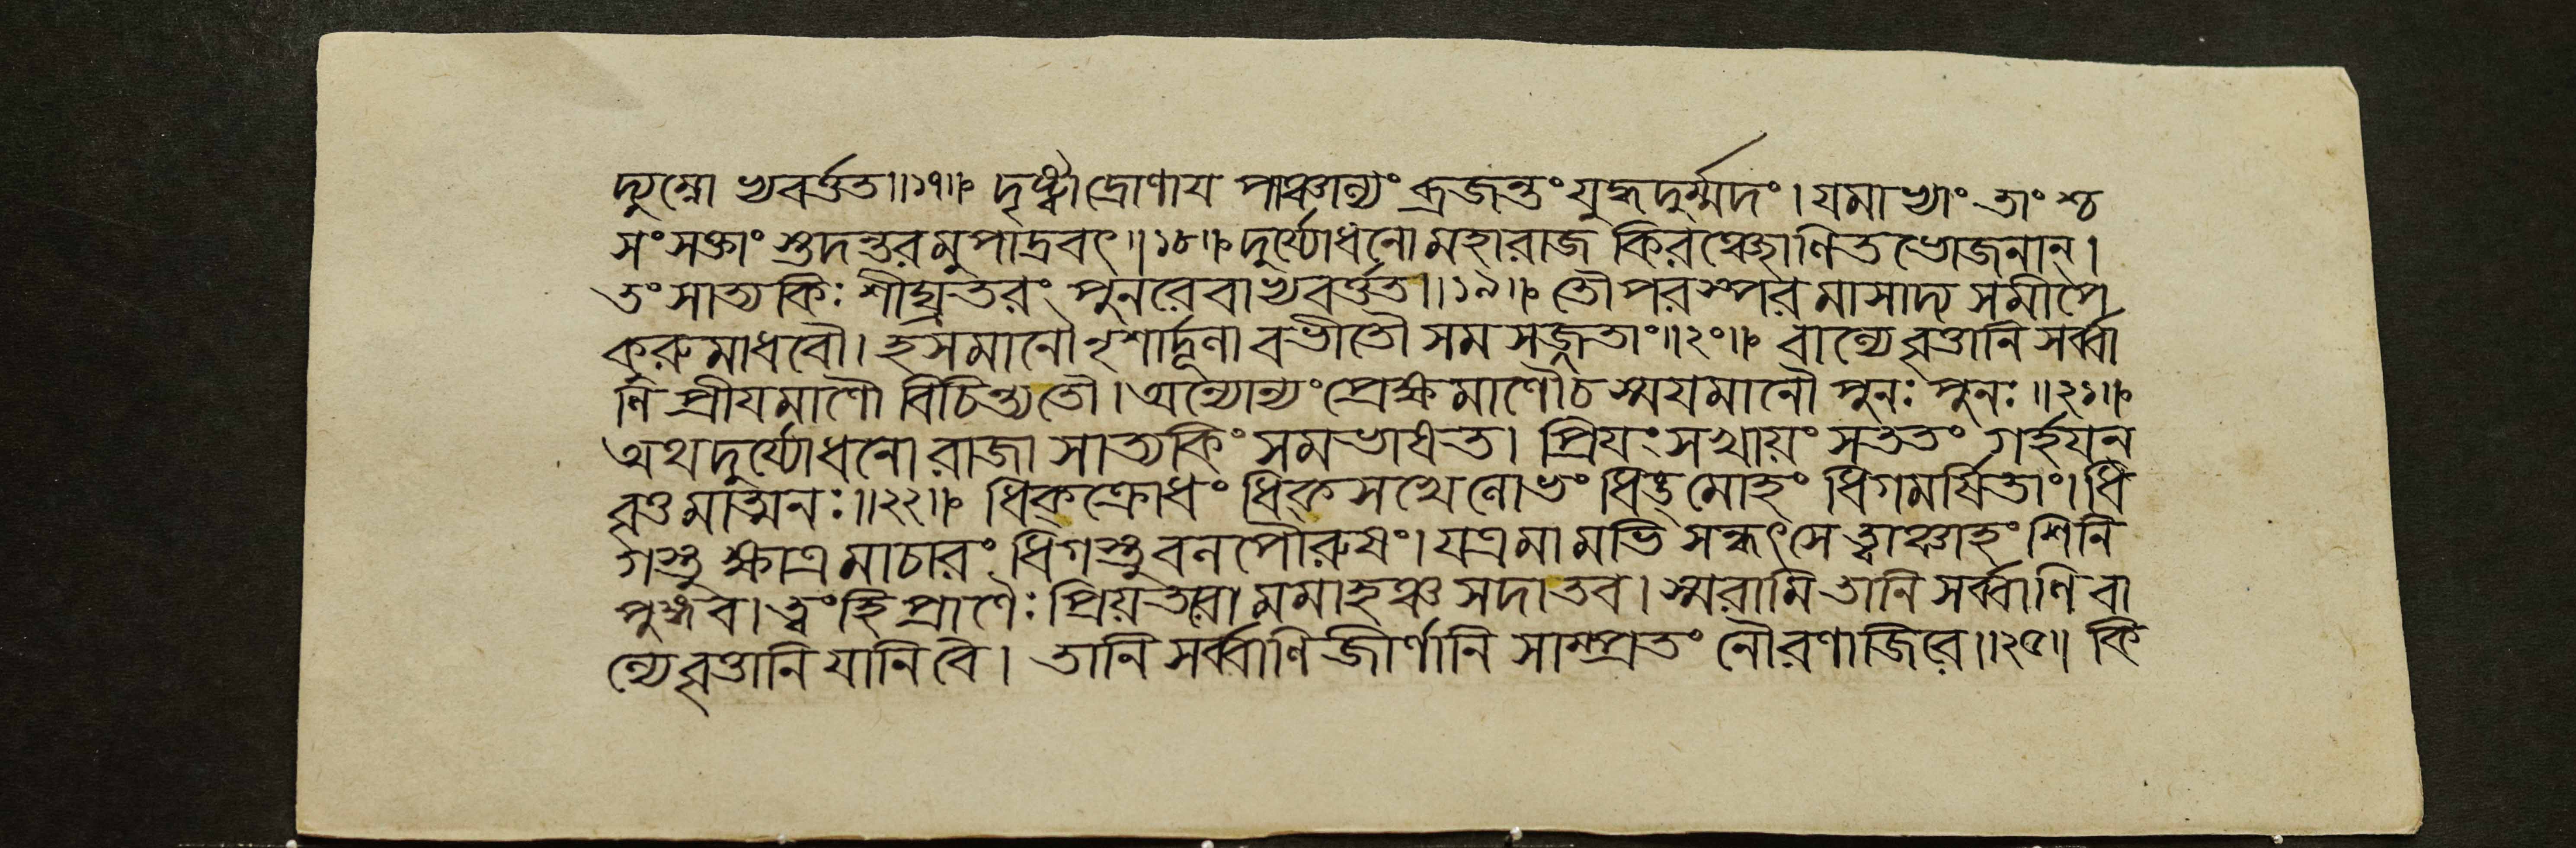 দ্যুম্নো ভ্যবর্ত্তত॥১৭॥ দৃষ্ট্বা দ্রোণায পাঞ্চাল্যং ব্রজন্তং যুদ্ধদুর্ম্মদং। যমাভ্যাং তাংশ্চ
সংসক্তাং স্তদন্তরমুপাদ্রবৎ॥১৮॥ দুর্য্যোধনো মহারাজ কিরঞ্ছোণিতভোজনান্।
তং সাত্যকিঃ শীঘ্রতরং পুনরেবাভ্যবর্ত্তত॥১৯॥ তৌ পরস্পরমাসাদ্য সমীপে
কুরুমাধবৌ। হসমানৌ নৃশার্দূলাবভীতৌ সমসজ্জতাং॥২০॥ বাল্যেবৃত্তানি সর্ব্বা
নি প্রীযমাণৌ বিচিন্ত্যতৌ। অন্যোন্যং প্রেক্ষমাণৌচ স্ময়মানৌ পুনঃ পুনঃ॥২১॥
অথ দুর্য্যোধনো রাজা সাত্যকিং সমভাষত। প্রিযং সখায়ং সততং গর্হযন
বৃত্তমাত্মনঃ॥২২॥ ধিক্ ক্রোধং ধিক্ সখে লোভং ধিঙ্মোহং ধিগমর্ষিতাং। ধি
গস্তু ক্ষাত্রমাচারং ধিগস্তু বলপৌরুষং। যত্রমামভিসন্ধৎসে ত্বাঞ্চাহং শিনি
পুঙ্গব। ত্বং হি প্রাণৈঃ প্রিয়তরো মমাহঞ্চ সদাতব। স্মরামি তানি সর্ব্বাণি বা
ল্যেবৃত্তানি যানি বৈ। তানি সর্ব্বাণি জীর্ণানি সাম্প্রতং নৌ রণাজিরে॥২৫॥ কি